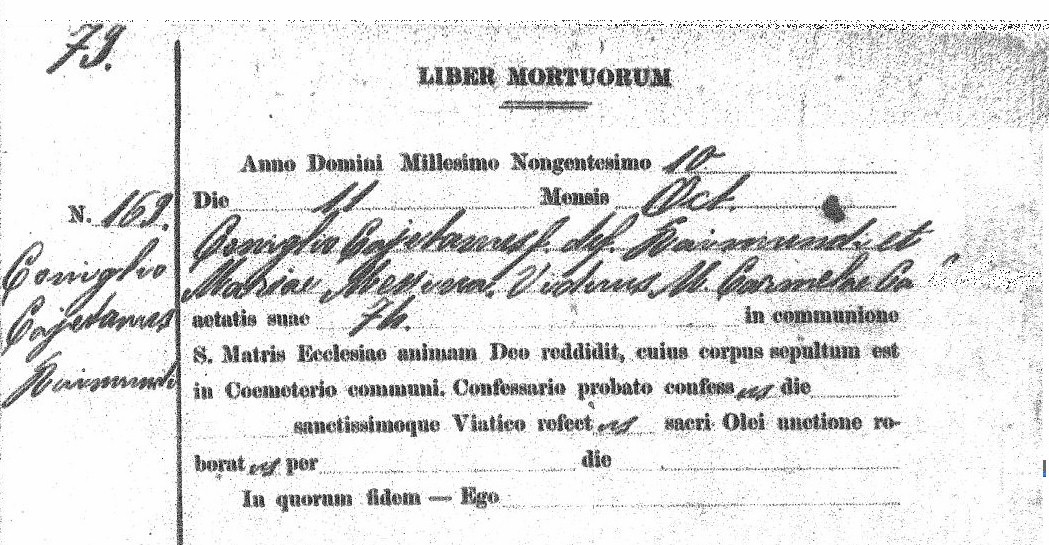 79.
LIBER MORTUORUM
Anno Domini Millesimo Nongentesimo 10
Die 11 Mensis Oct.
N. 169.
Coniglio Cajetanus f. def. Raimundi et
Mariae Messina. Viduus M. Carmelae Ca
Coniglio
Cajetanus
Raimundi
aetatis suae 74. in communione
S. Matris Ecclesiae animam Deo reddidit, cuius corpus sepultum est
in Coemeterio communi. Confessario probato confessus die
sanctissimoque Viatico refectus sacri Olei unctione ro-
boratus per die
In quorum fidem — Ego